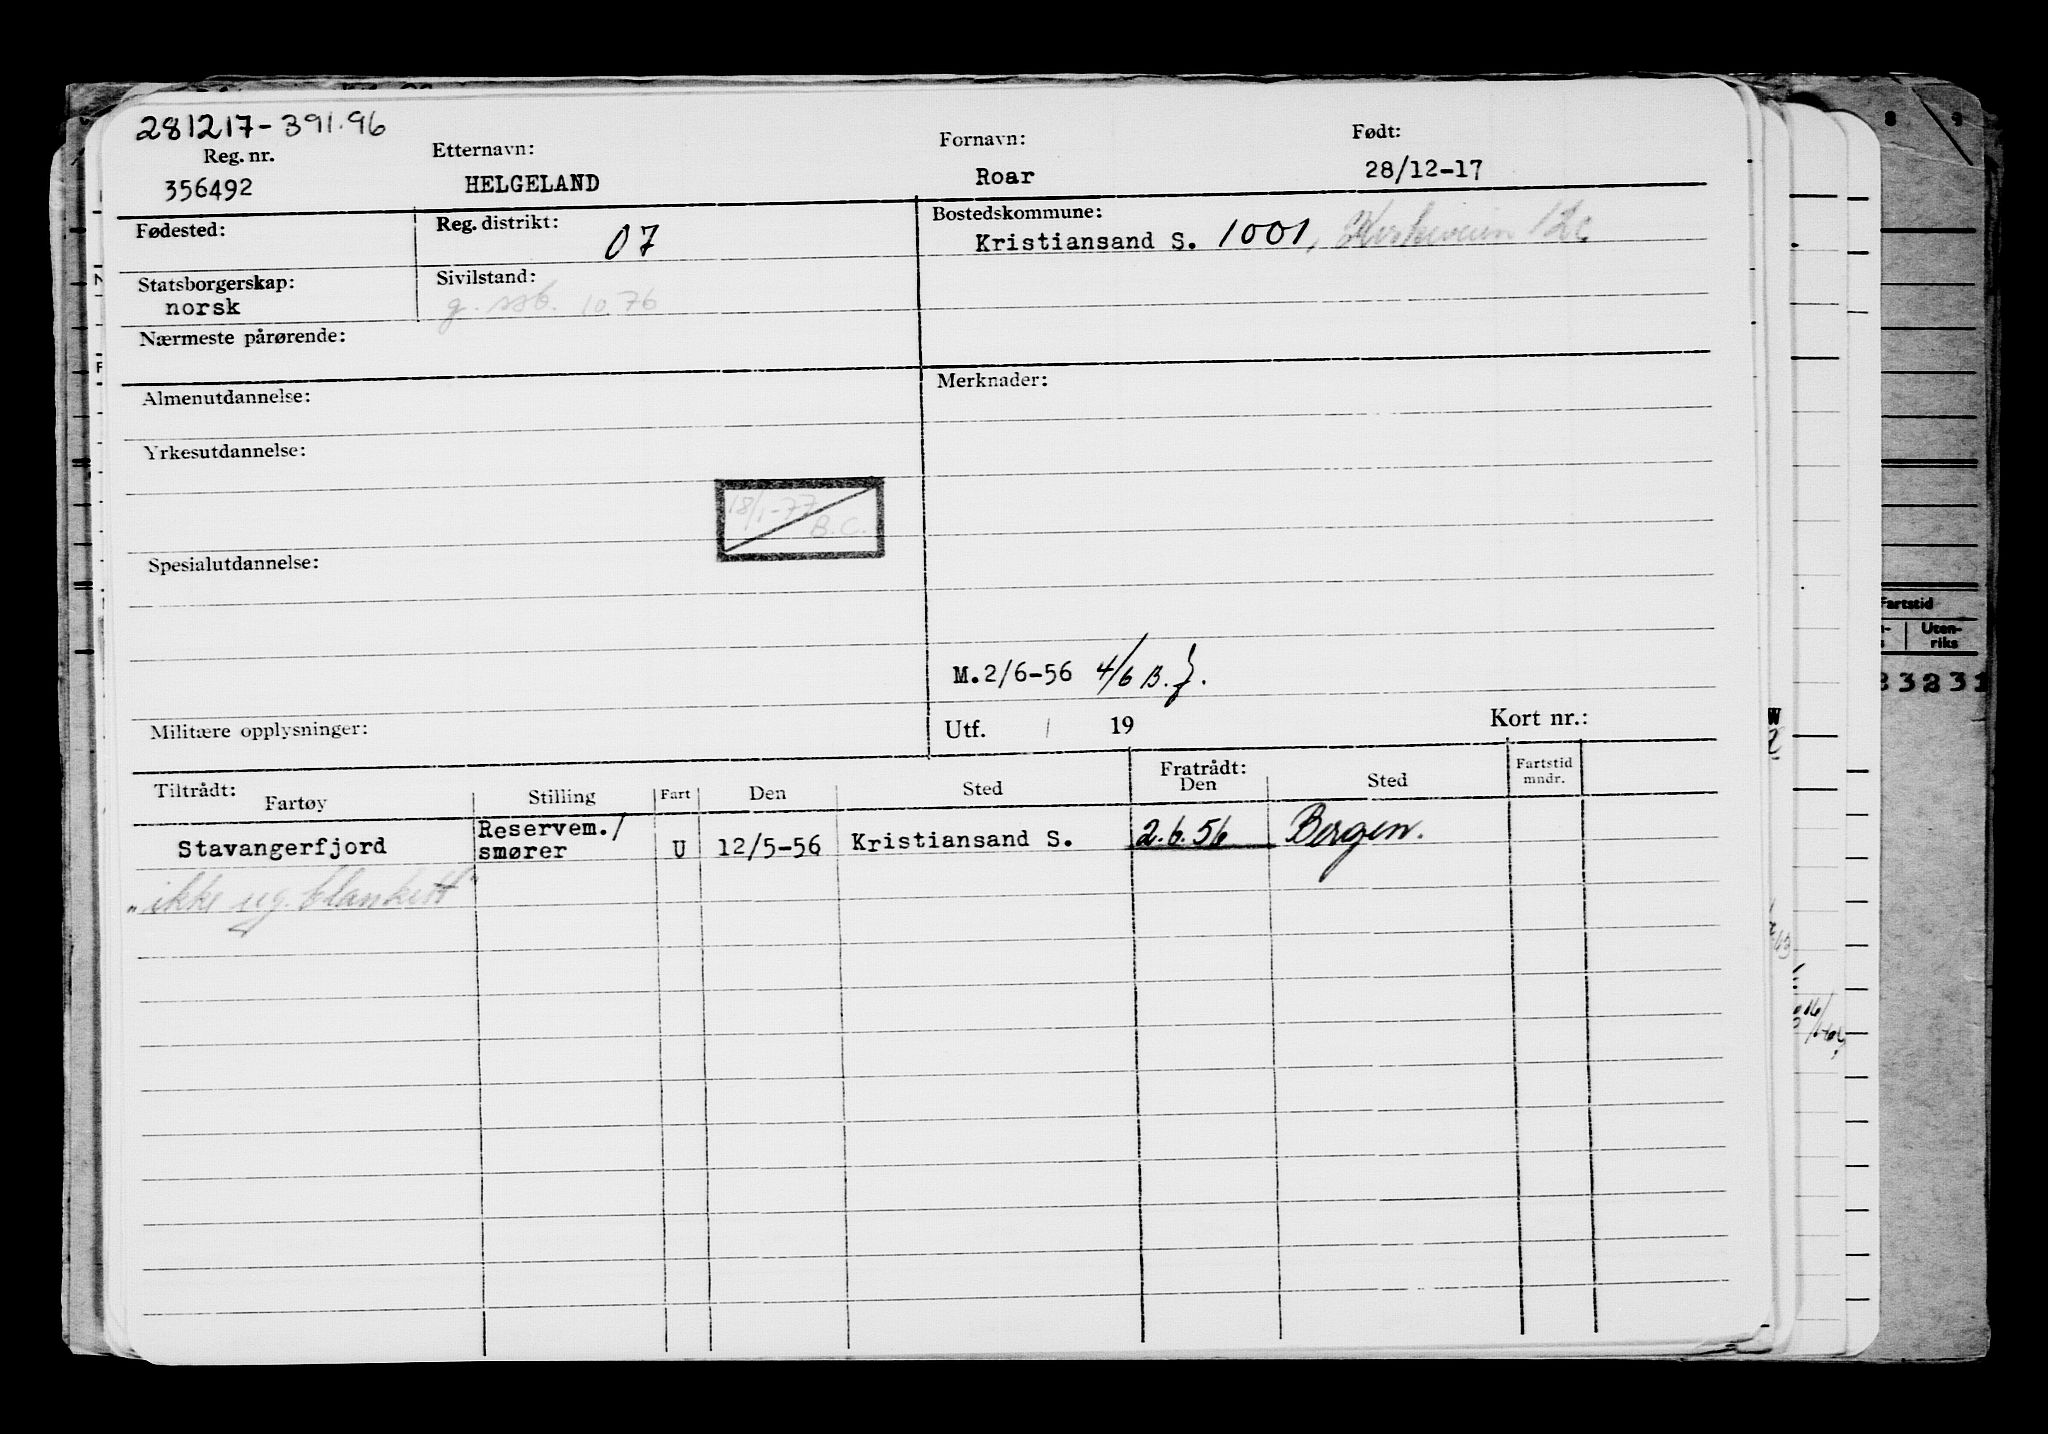 281217-391.96
Reg. nr. Etternavn: Fornavn: Født:
356492 HELGELAND Roar 28/12-17
Fødested: Reg. distrikt: 07 Bostedskommune:
Kristiansand S. 1001,
Statsborgerskap: Sivilstand:
norsk g. 10.76
Nærmeste pårørende:
Almenutdannelse: Merknader:
Yrkesutdannelse:
18/1-77
B.C.
Spesialutdannelse:
M.2/6-56 4/6 B.J.
Militære opplysninger: Utf. / 19 Kort nr.:
Tiltrådt: Fratrådt: Fartstid
Fartøy Stilling Fart Den Sted Den Sted mndr.
Stavangerfjord Reservem./ U 12/5-56 Kristiansand S. 2.6.56 Bergen.
smører
"ikke ug. blankett"
8 9
Fartstid
Uten-
riks